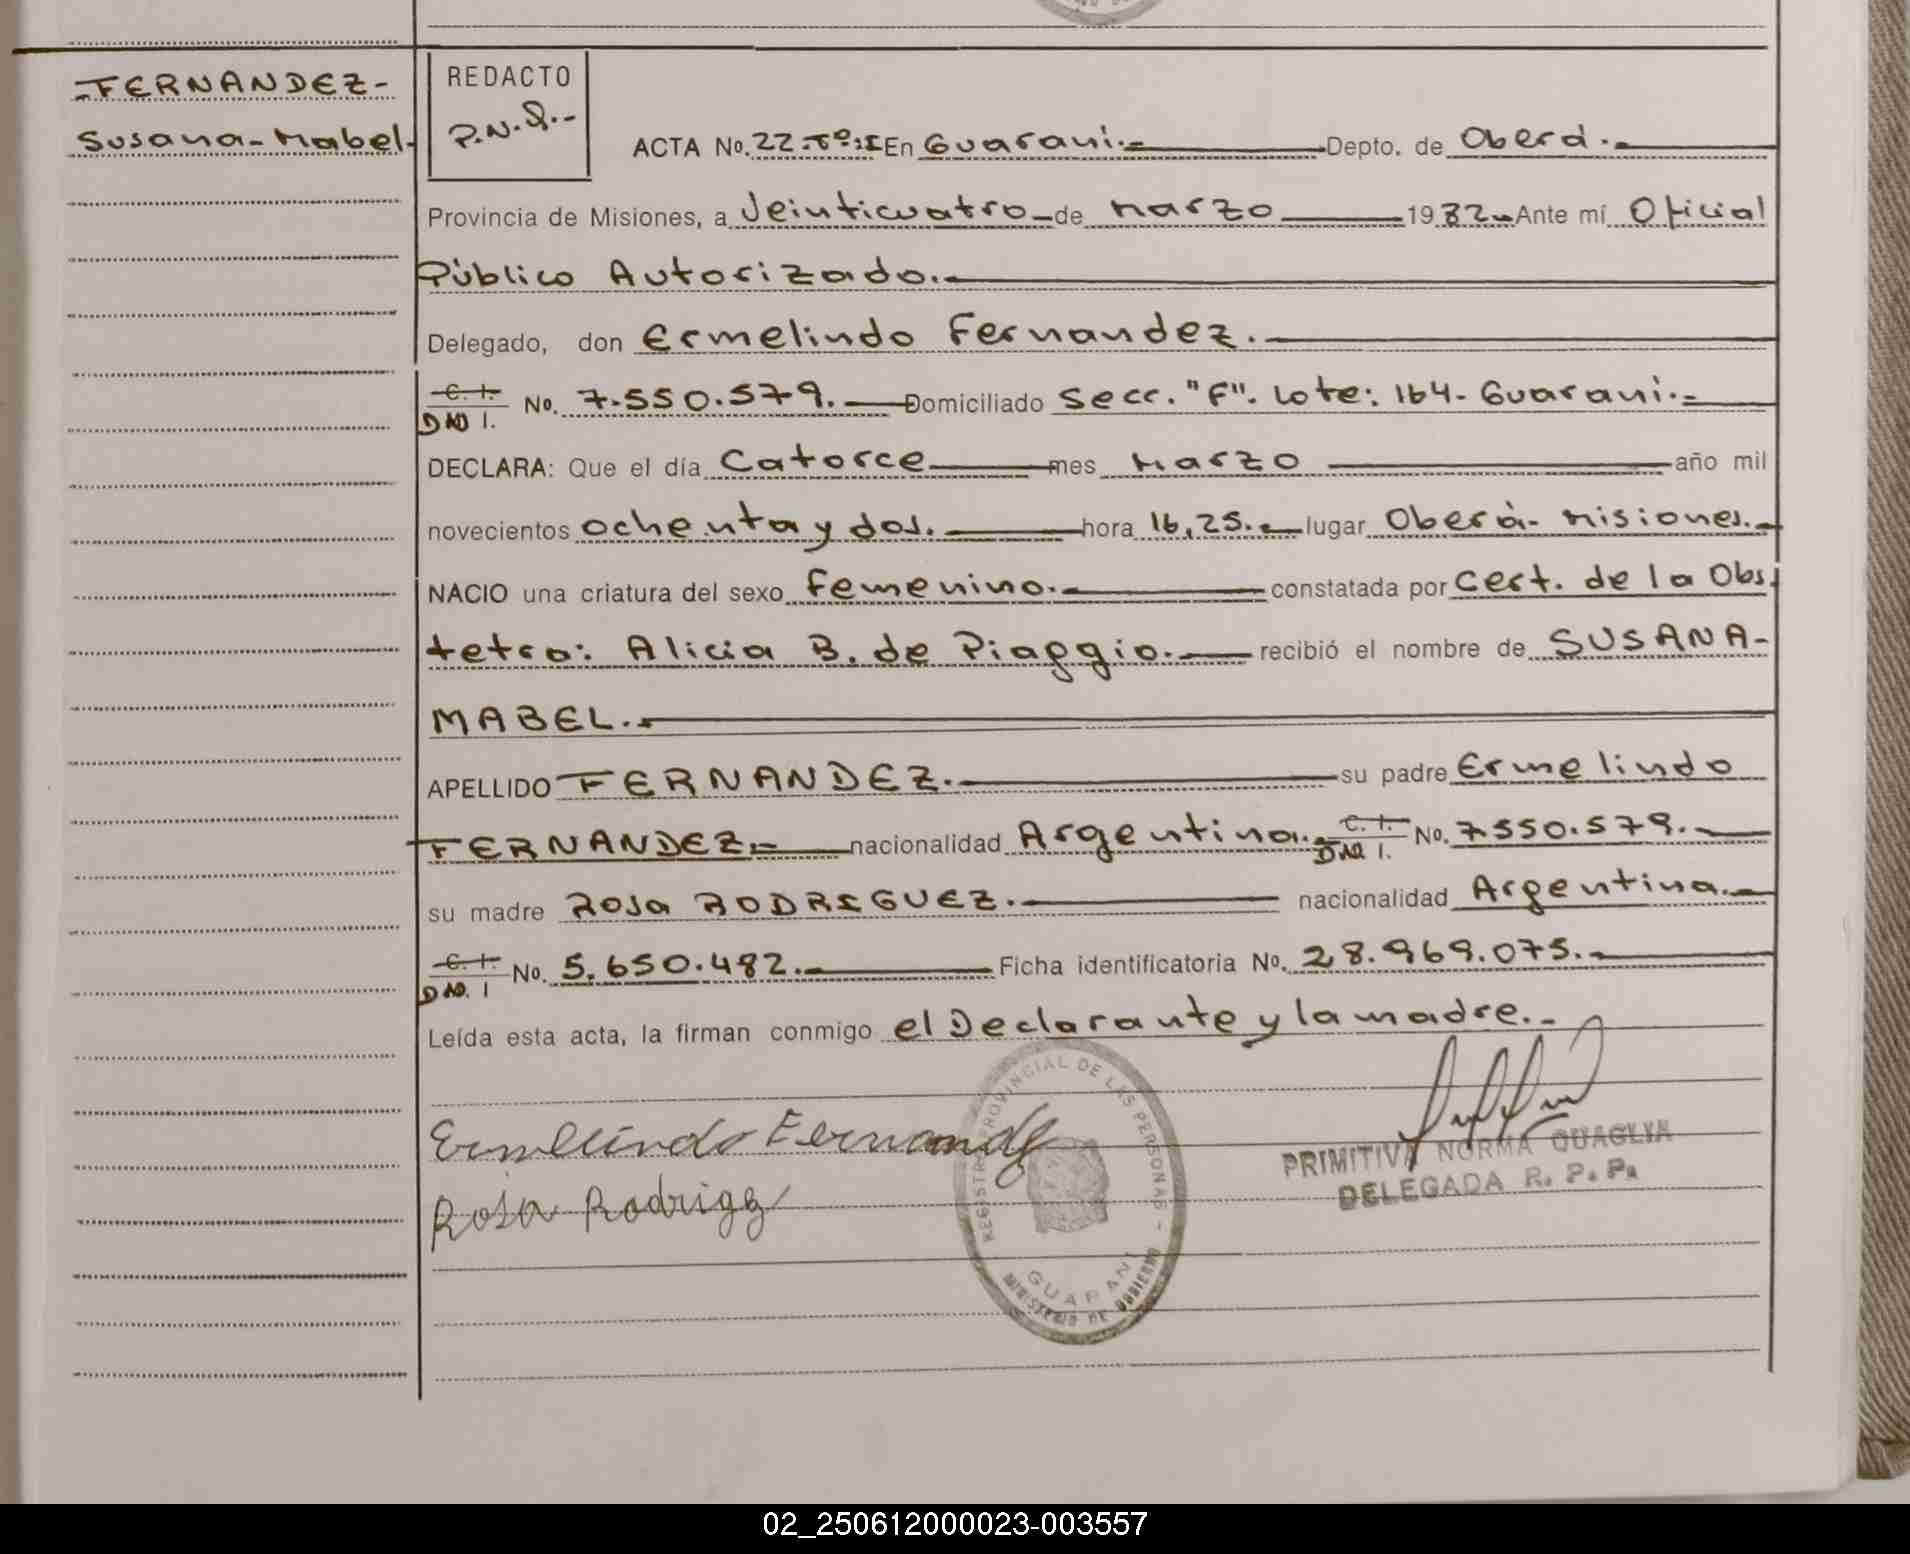 -FERNANDEZ-
Susana-Mabel-
REDACTO
P.N.Q.-
ACTA No. 22-Tº:I En Guaraní.- Depto. de Oberá.-
Provincia de Misiones, a Veinticuatro-de Marzo 1982-Ante mí Oficial
Público Autorizado.-
Delegado, don Ermelindo Fernandez.-
C. I. DNI. No. 7.550.579.- Domiciliado Secc. "F". Lote: 164- Guaraní.-
DECLARA: Que el día Catorce mes Marzo año mil
novecientos ochenta y dos.- hora 16,25.- lugar Oberá- Misiones.-
NACIO una criatura del sexo Femenino.- constatada por Cert. de la Obs-
tetra: Alicia B. de Piaggio.- recibió el nombre de SUSANA-
MABEL.-
APELLIDO FERNANDEZ.- su padre Ermelindo
FERNANDEZ.- nacionalidad Argentina.- C. I. DNI. No. 7550.579.-
su madre Rosa RODRIGUEZ.- nacionalidad Argentina.-
C. I. DNI. No. 5.650.482.- Ficha identificatoria No. 28.969.075.-
Leída esta acta, la firman conmigo el Declarante y la madre.-
Ermelindo Fernandez
Rosa Rodrigz
REGISTRO PROVINCIAL DE LAS PERSONAS -
GUARANI
MINISTERIO DE GOBIERNO
PRIMITIVA NORMA QUAGLIA
DELEGADA R. P. P.
02_250612000023-003557